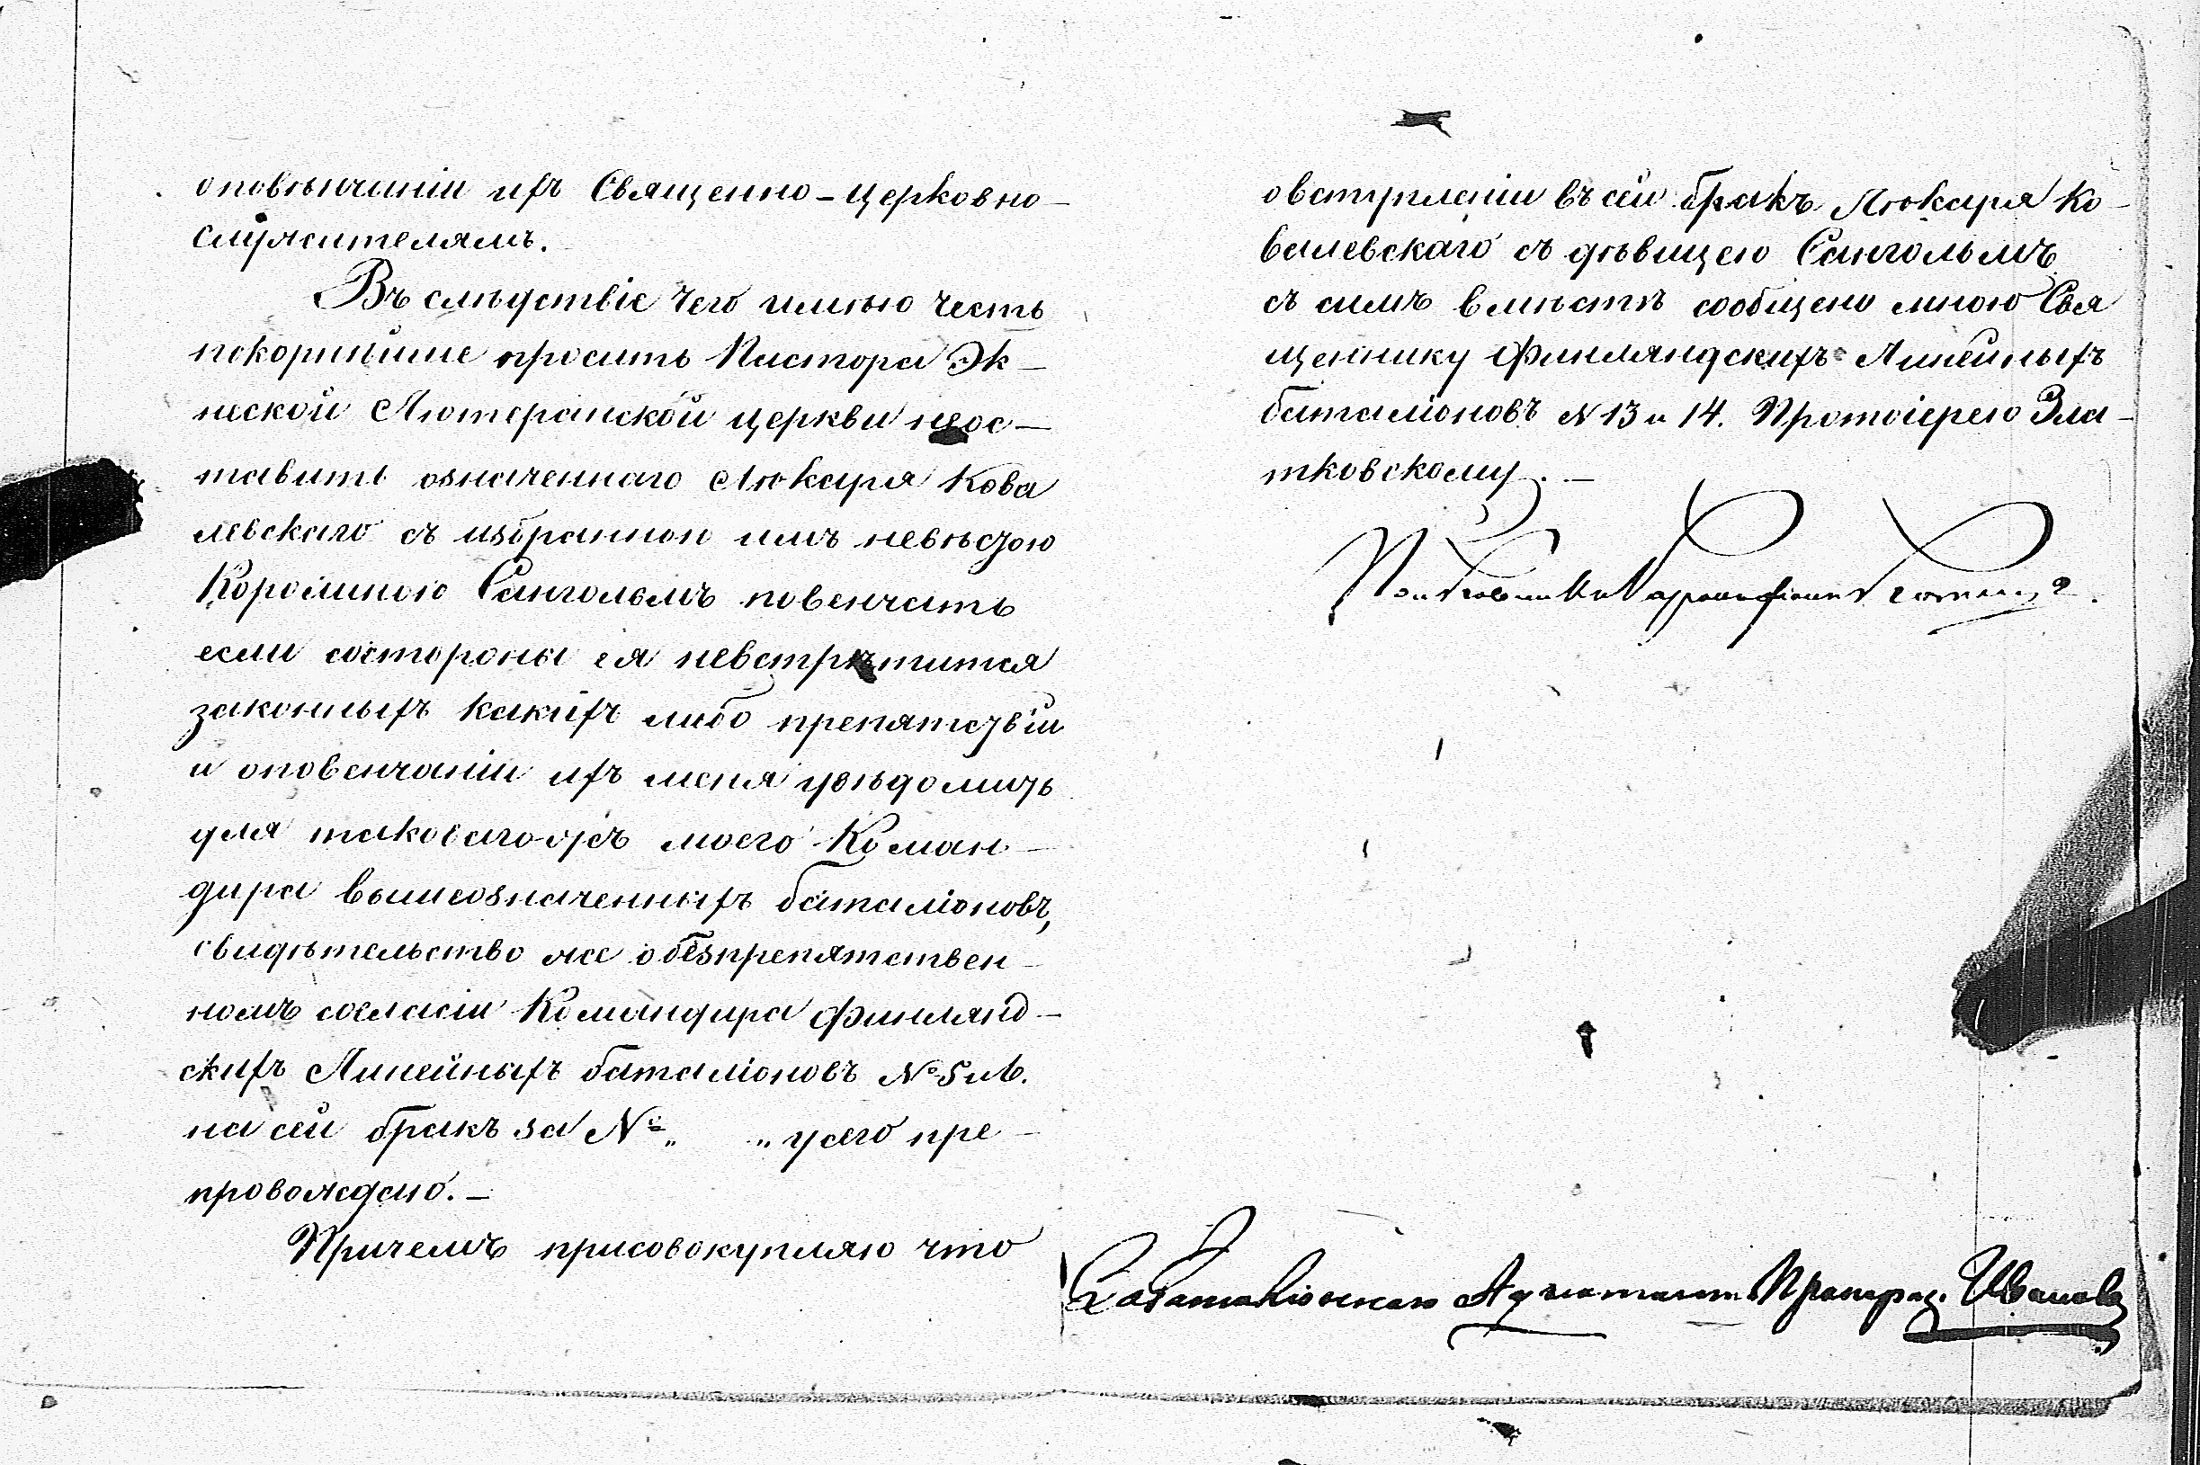 оповѣнчаніи ихъ Священно-церковно-
служителямъ.
Въ слѣдствіе чего имѣю честь
покорнѣйше просить Пастора Эк-
неской Лютеранской церкви неос-
тавить означеннаго Лекаря Кова
левскаго съ избранною имъ невѣстою
Каролиною Сангольмъ повенчать
если состороны ея невстрѣтится
законныхъ какихъ либо препятствій
и оповенчаніи ихъ меня увѣдомить
для таковаго-жъ моего Коман-
дира вышеозначенныхъ баталіоновъ,
свидѣтельство же о безпрепятствен-
номъ согласіи Командира Финлянд-
скихъ Линейныхъ баталіоновъ № 5 и 6.
на сей бракъ за № „ „ усего пре-
провождено. —
Причемъ присовокупляю что
овступленіи въ сей бракъ Лекаря Ко-
валевскаго съ дѣвицею Сангольмъ
съ симъ вмѣстѣ сообщено мною Свя
щеннику Финляндскихъ Линейныхъ
баталіоновъ N 13 и 14. Протоіерею Зла-
тковскому. —
Полковникъ
Забаталіоннаго Адъютанта Прапорщ. Ивановъ